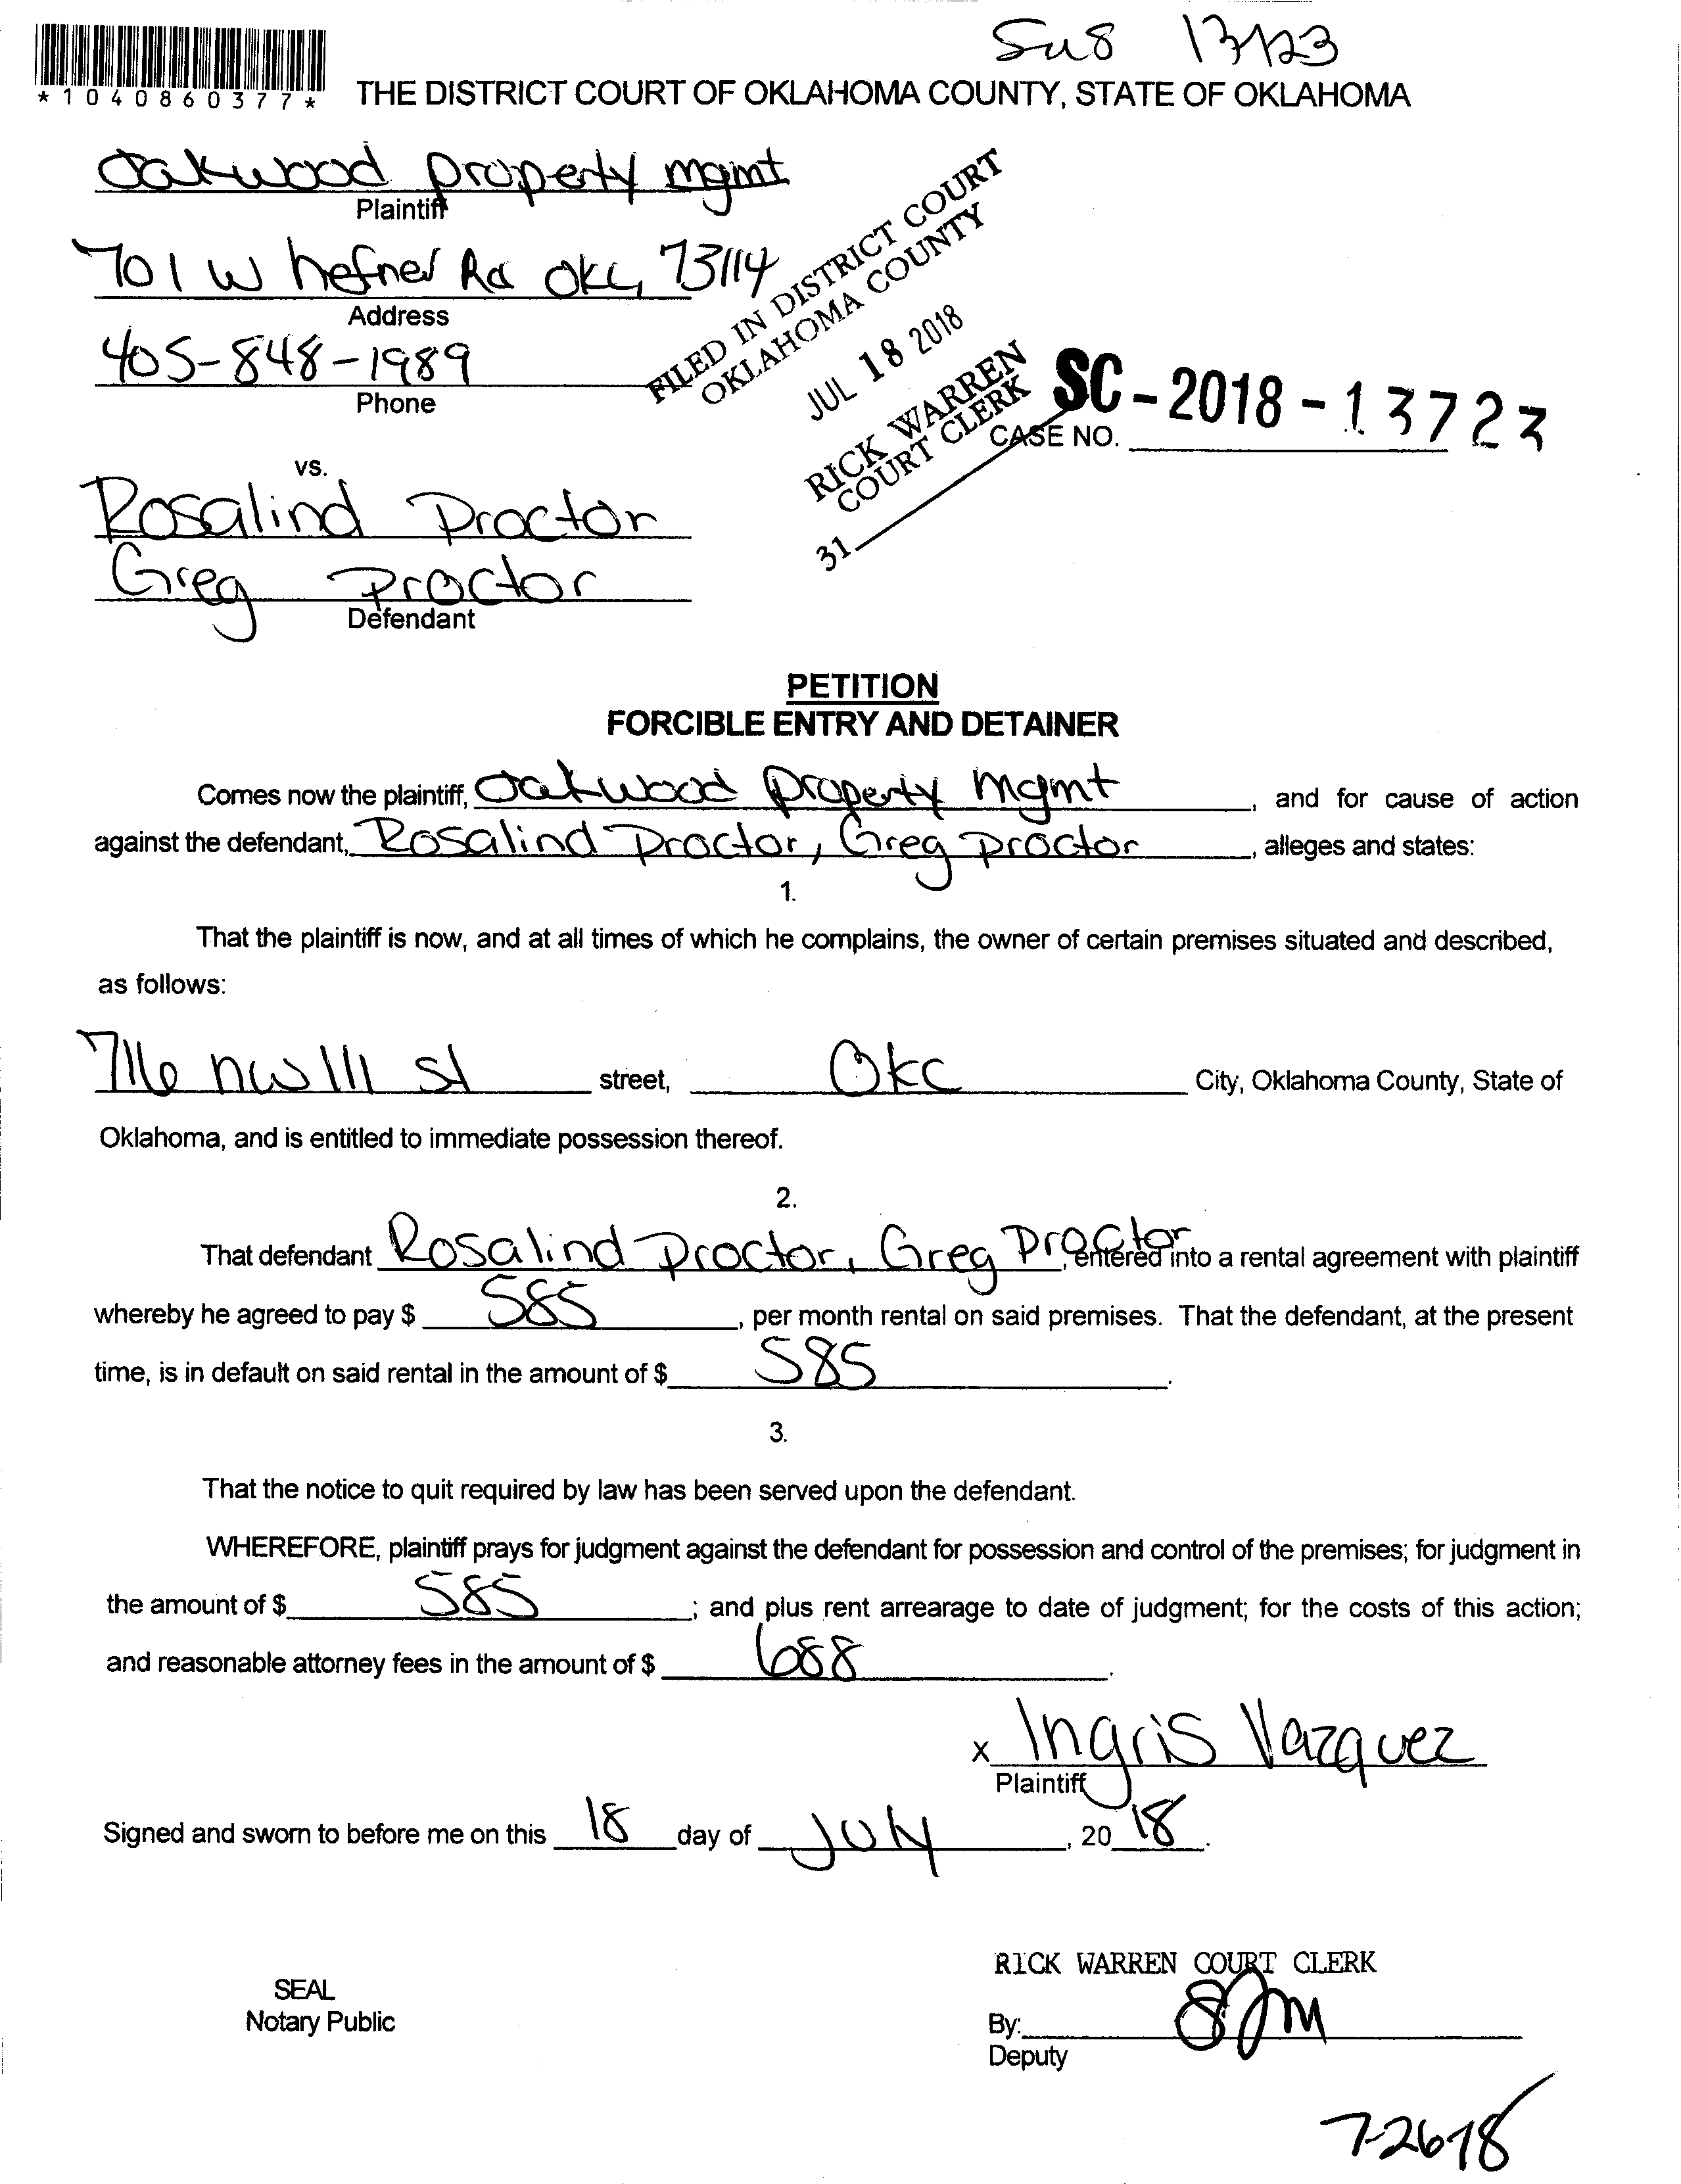 Su8 13723
*1040860377*
THE DISTRICT COURT OF OKLAHOMA COUNTY, STATE OF OKLAHOMA
Oakwood property mgmt
Plaintiff
701 W hefner Rd OKC, 73114
Address
405-848-1989
Phone
FILED IN DISTRICT COURT
OKLAHOMA COUNTY
JUL 18 2018
RICK WARREN
COURT CLERK
31
SC-2018-13723
CASE NO.
vs.
Rosalind Proctor
Greg Proctor
Defendant
PETITION
FORCIBLE ENTRY AND DETAINER
Comes now the plaintiff, Oakwood property Mgmt, and for cause of action
against the defendant, Rosalind Proctor, Greg Proctor, alleges and states:
1.
That the plaintiff is now, and at all times of which he complains, the owner of certain premises situated and described,
as follows:
716 nw 111 st street, OKC City, Oklahoma County, State of
Oklahoma, and is entitled to immediate possession thereof.
2.
That defendant Rosalind Proctor, Greg Proctor, entered into a rental agreement with plaintiff
whereby he agreed to pay $ 585, per month rental on said premises. That the defendant, at the present
time, is in default on said rental in the amount of $ 585.
3.
That the notice to quit required by law has been served upon the defendant.
WHEREFORE, plaintiff prays for judgment against the defendant for possession and control of the premises; for judgment in
the amount of $ 585; and plus rent arrearage to date of judgment; for the costs of this action;
and reasonable attorney fees in the amount of $ 688.
x Ingris Vazquez
Plaintiff
Signed and sworn to before me on this 18 day of July, 20 18.
RICK WARREN COURT CLERK
SEAL
Notary Public
By:
Deputy
7-26-18